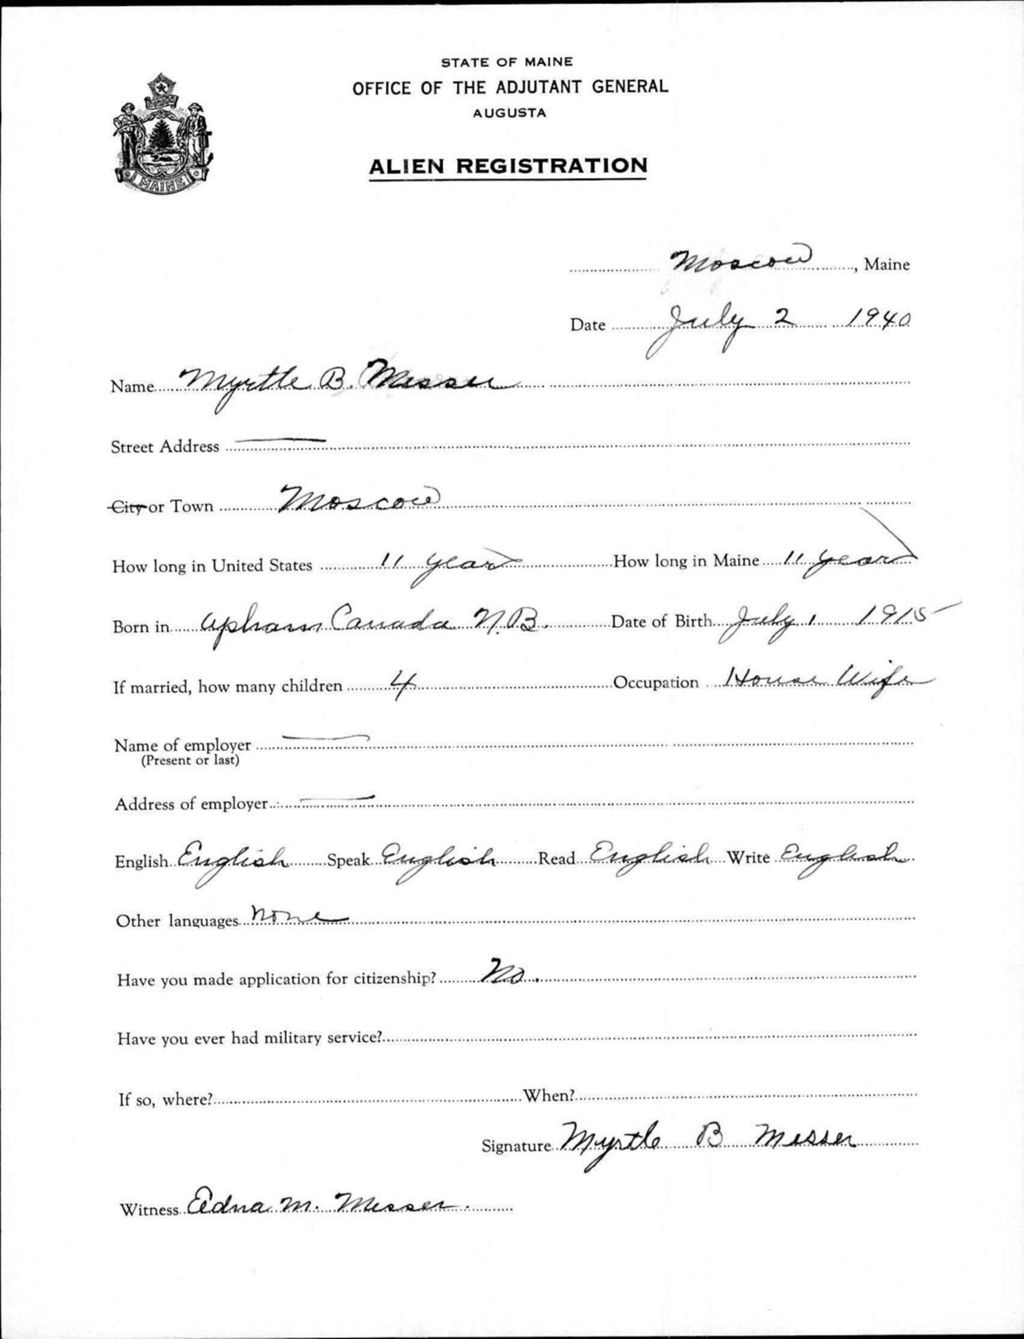 STATE OF MAINE
OFFICE OF THE ADJUTANT GENERAL
AUGUSTA
ALIEN REGISTRATION
MAINE
Moscow, Maine
Date July 2 1940
Name Myrtle B. Messer
Street Address —
City or Town Moscow
How long in United States 11 years How long in Maine 11 years
Born in Upham Canada N.B. Date of Birth July 1 1915
If married, how many children 4 Occupation House Wife
Name of employer —
(Present or last)
Address of employer —
English English Speak English Read English Write English
Other languages None
Have you made application for citizenship? No.
Have you ever had military service?
If so, where? When?
Signature Myrtle B Messer
Witness Edna M. Messer.